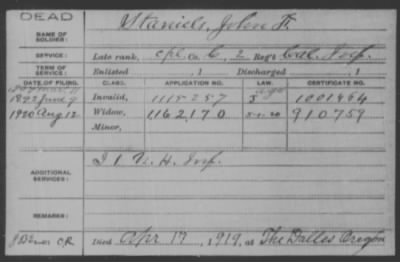 DEAD
NAME OF SOLDIER: Staniels, John F.
SERVICE: Late rank, Cpl Co. C, 2 Reg't Cal. Inf.
TERM OF SERVICE: Enlisted , 1 Discharged , 1
DATE OF FILING. CLASS. APPLICATION NO. LAW. CERTIFICATE NO.
1892 June 9 Invalid, 1115257 1001464
1920 Aug 12 Widow, 1162170 5-1-20 910759
Minor,
ADDITIONAL SERVICES: I 1 N.H. Inf.
REMARKS:
Died Apr 17, 1919, at The Dalles Oregon